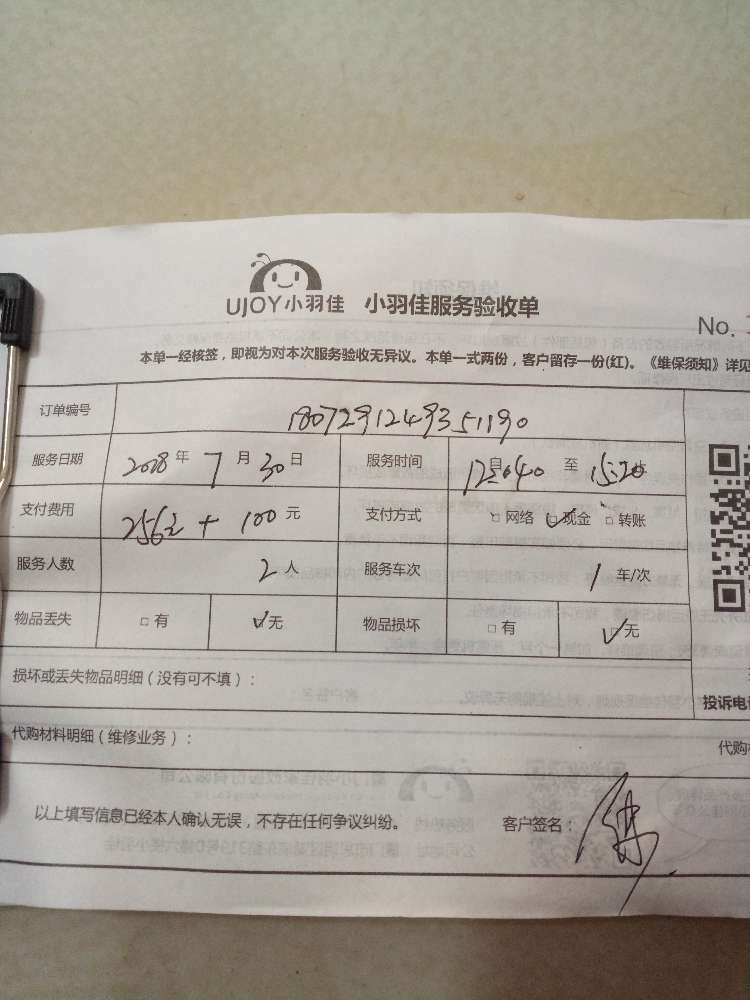 UJOY小羽佳 小羽佳服务验收单
No.
本单一经核签，即视为对本次服务验收无异议。本单一式两份，客户留存一份(红)。《维保须知》详见
订单编号 1807291249351190
服务日期 2018年 7月 30日 服务时间 12:40 至 15:20
支付费用 256元 + 100元 支付方式 □ 网络 ☑ 现金 □ 转账
服务人数 2人 服务车次 1车/次
物品丢失 □ 有 ☑ 无 物品损坏 □ 有 ☑ 无
损坏或丢失物品明细（没有可不填）：
投诉电
代购材料明细（维修业务）：
代购
以上填写信息已经本人确认无误，不存在任何争议纠纷。 客户签名：